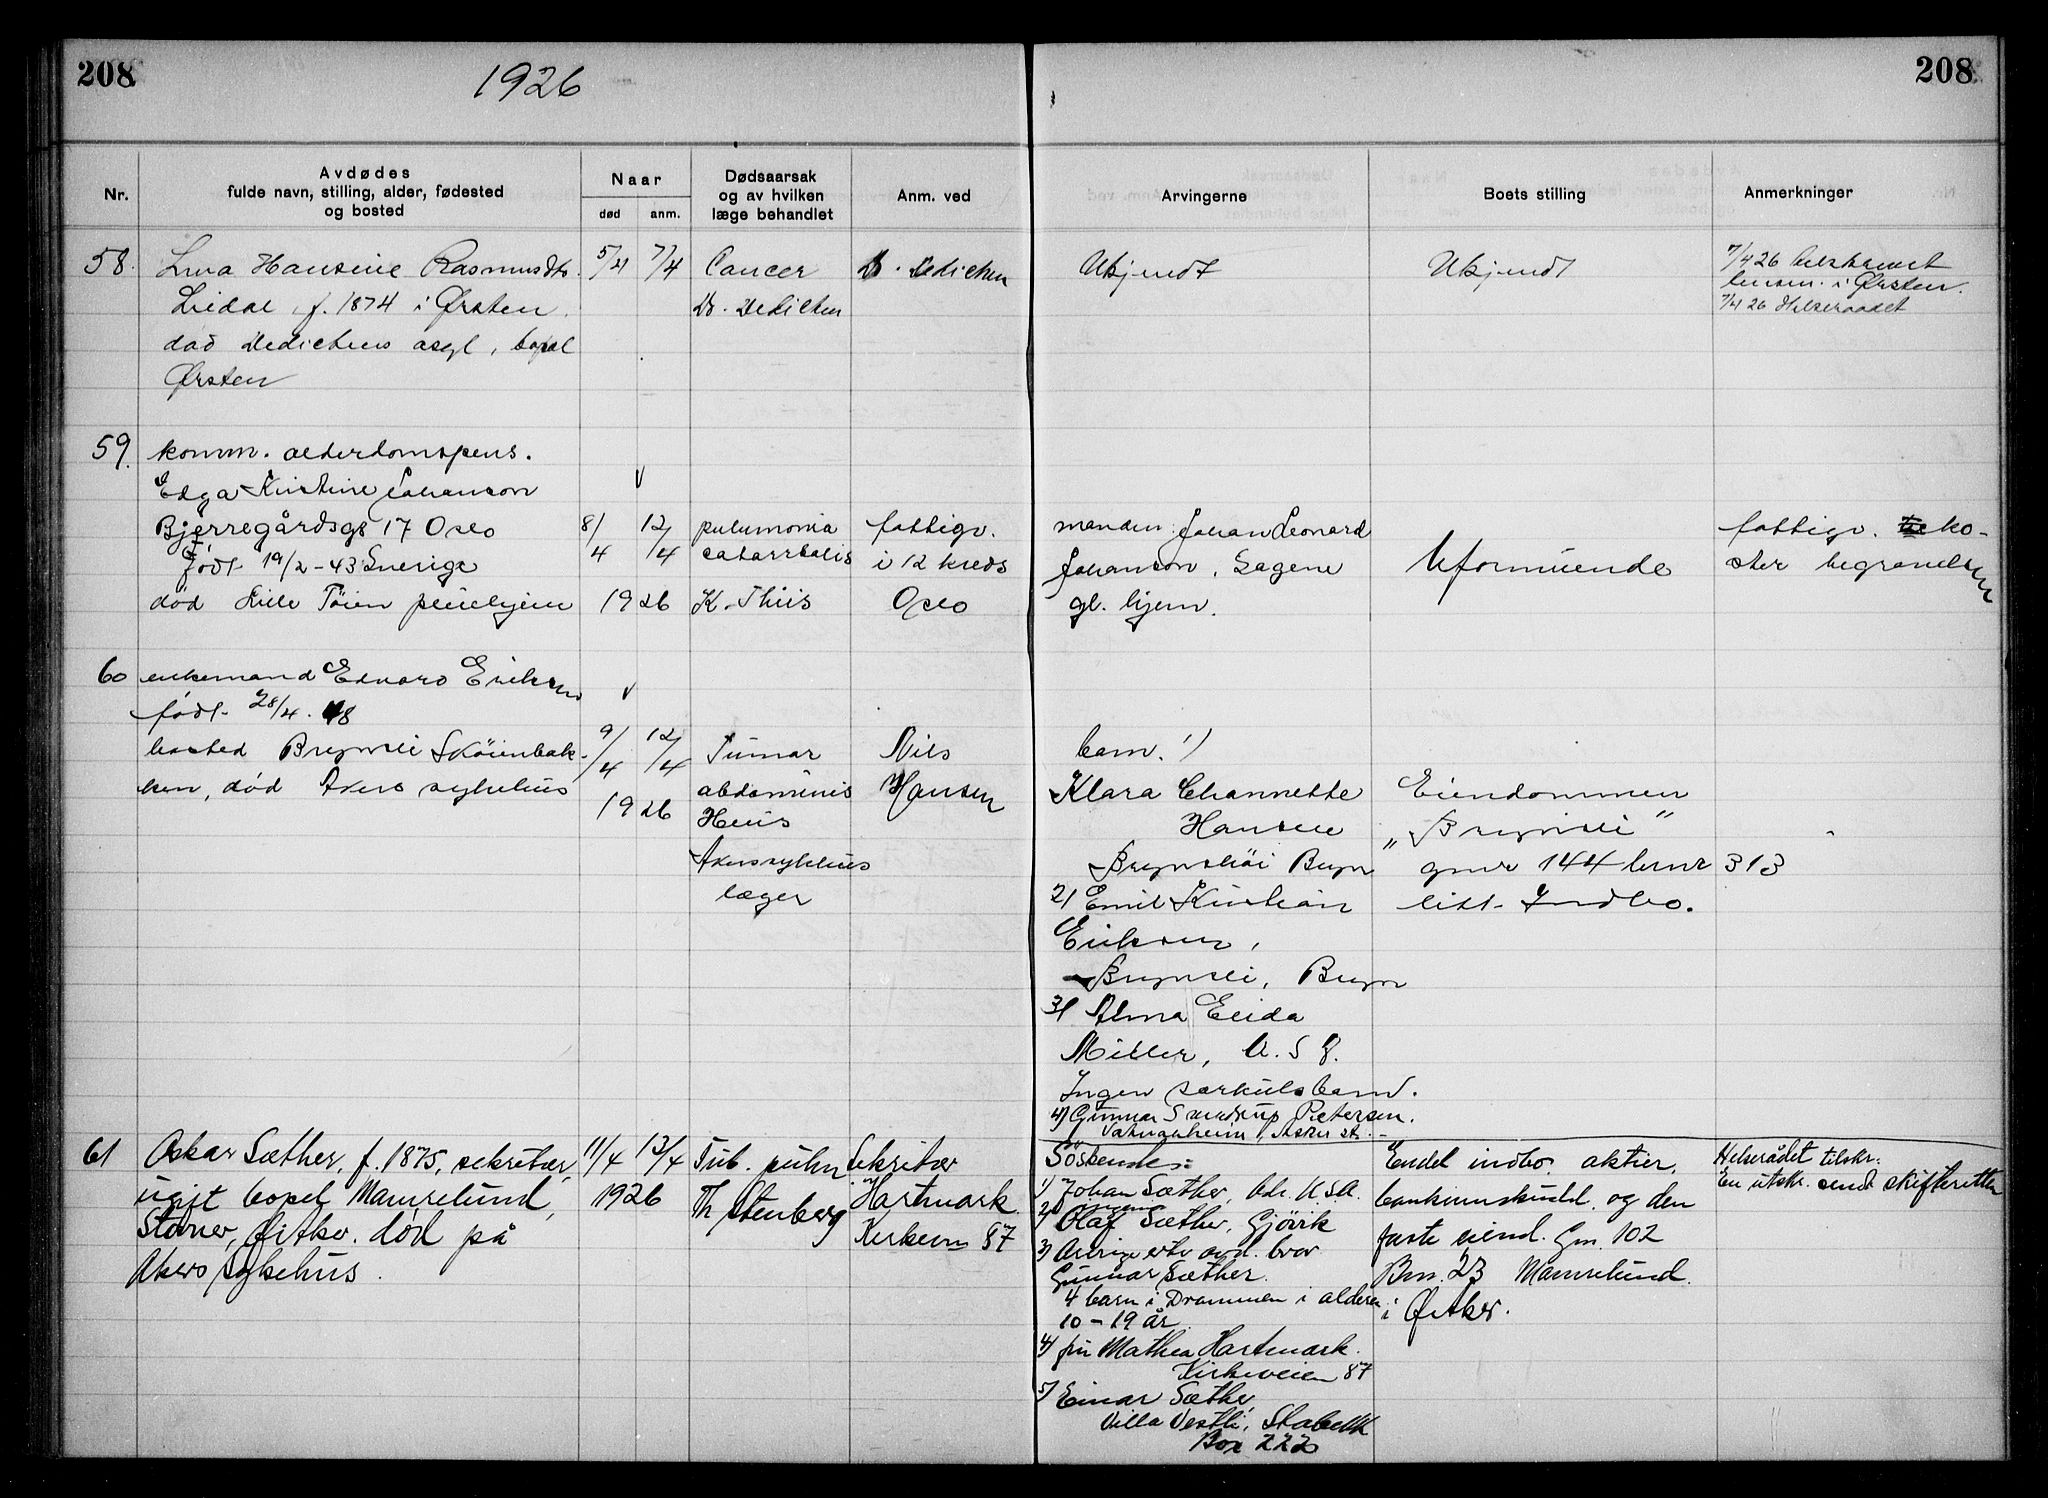 208
1926
208
Nr.
Avdødes
fulde navn, stilling, alder, fødested
og bosted
Naar
død
anm.
Dødsaarsak
og av hvilken
læge behandlet
Anm. ved
Arvingerne
Boets stilling
Anmerkninger
58.
Hansine Rasmusdtr.
Liedal, f. 1874 i Ørsten.
død Dedichens asyl, bopæl
Ørsten
5/4
7/4
Cancer
Dr. Dedichen
Dr. Dedichen
Ukjendt
Ukjendt
7/4 26 tilskrevet
lensm. i Ørsten.
7/4 26 Helseraadet
59.
komm. alderdomspens.
Kristine Johanson
Bjerregårdsgt 17 Oslo
født 19/2-43 Sverige
død Lille Tøien pleiehjem
8/4
12/4
1926
pulumonia
catarrhalis
K. Thiis
fattigv.
i 12 kreds
Oslo
manden Johan Leonard
Johanson, Sagene
gl. hjem.
Uformuende
fattigv. ko-
ster begravelsen
60
enkemand Edvard Eriksen
født 28/4.48
bosted Brynsli Skøienbak-
ken, død Akers sykehus
9/4
12/4
1926
Tumor
abdominis
Akers sykehus
læger
Nils
Hansen
barn. 1)
Klara Channette
Hansen
Brynshøi Bryn
2) Emil Kristian
Eriksen,
Brynsli, Bryn
3) Alma Elida
Miller, U.S.A.
Ingen særkulsbarn.
4) Gunnar Pettersen.
Asker st.
Eiendommen
„Brynsli”
gnr 144 bnr 313
litt Indbo.
61
Oskar Sæther, f. 1875, sekretær,
ugift bopæl Mamrelund,
Stovner, Ø. Aker. død på
Akers sykehus.
11/4
13/4
1926
Tub. pulm.
Th Stenberg
Sekretær
Hartmark.
Kirkevn 87
Søskende:
1) Johan Sæther, Adr. USA.
2) Olaf Sæther, Gjøvik
3) avd. bror
Gunnar Sæther.
4 barn i Drammen i alderen
10-19 år.
4) fru Mathea Hartmark.
Kirkeveien 87
5) Einar Sæther,
Villa Vestli, Stabekk
Box 222
Endel indbo, aktier,
bankinnskudd. og den
faste eiend. Gn. 102
Bn. 23 Mamrelund
i Ø. Aker.
Helserådet tilskr.
En utskr. sendt skifteretten